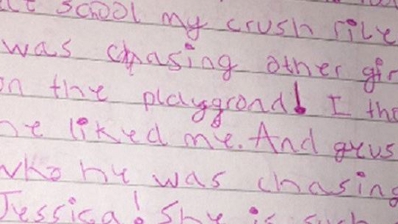 SCOOL my crush rile
was chasing other gir
on the playggrond! I tho
he liked me. And geus
who he was chasing
Jessica! She is such